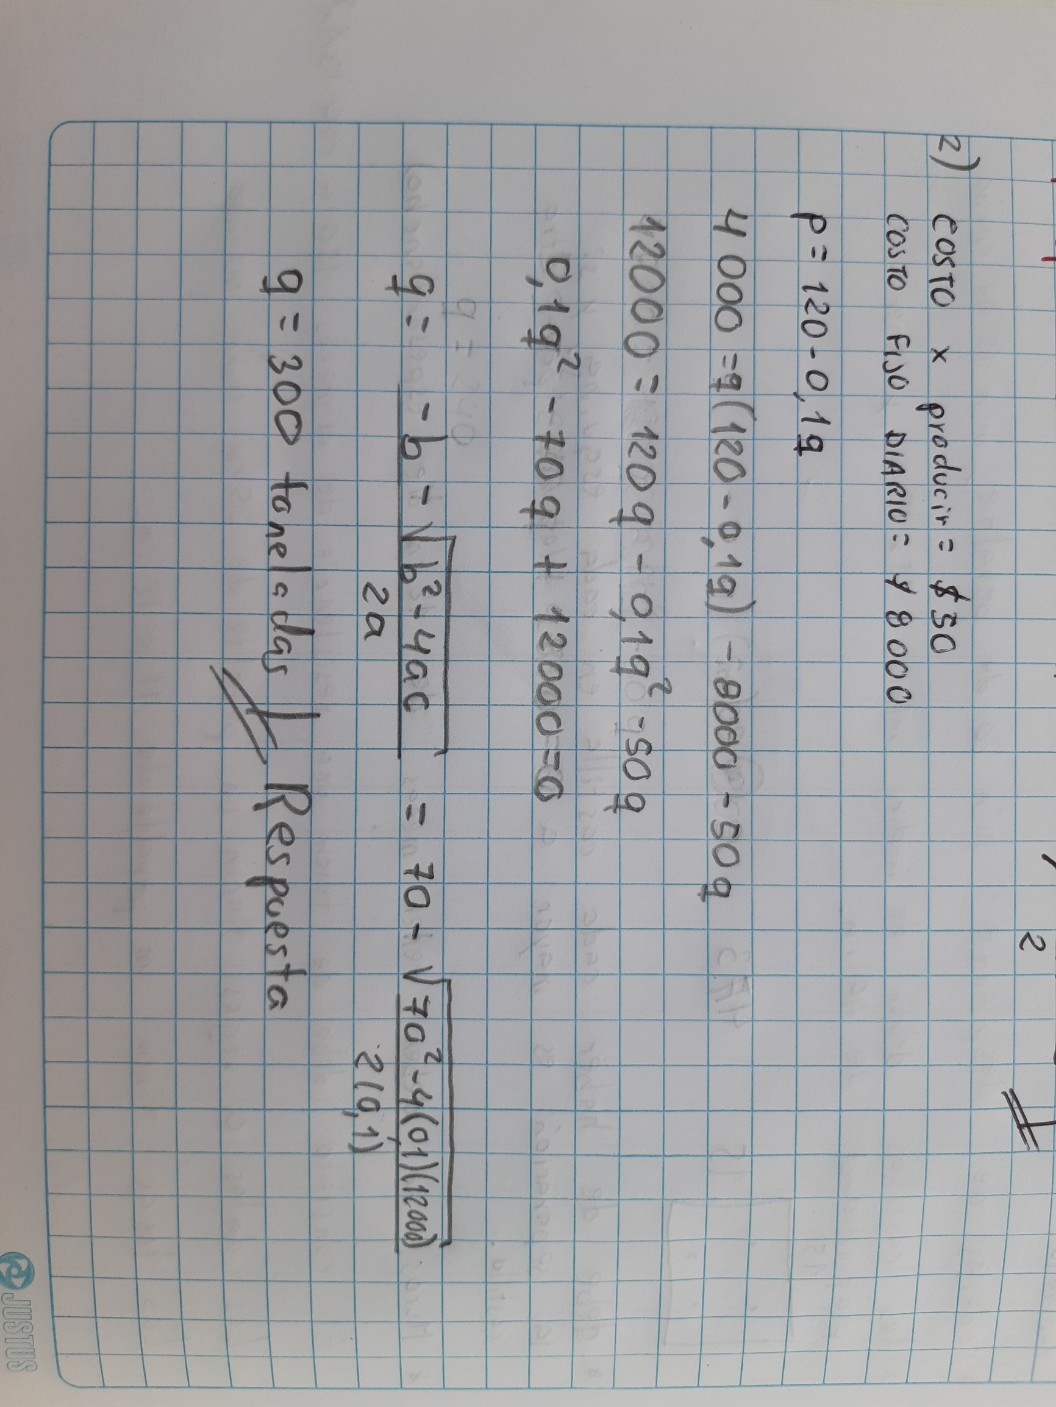 2
2) COSTO x producir = $50
COSTO FIJO DIARIO = $ 8000
p = 120 - 0,1q
4000 = q(120 - 0,1q) - 8000 - 50q
12000 = 120q - 0,1q² - 50q
0,1q² - 70q + 12000 = 0
q = -b - √b² - 4ac / 2a = 70 - √70² - 4(0,1)(12000) / 2(0,1)
q = 300 toneladas Respuesta
JUSTUS